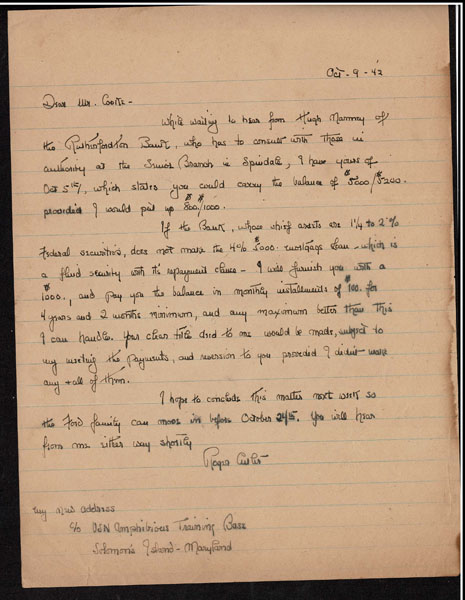 Oct - 9 - 42
Dear Mr. Cooke -
While waiting to hear from Hugh Nanney of
the Rutherfordton Bank, who has to consult with those in
authority at the Senior Branch in Spindale, I have yours of
Oct 5th, which states you could carry the balance of $5000/$5200.
provided I would put up $800/$1000.
If the Bank, whose chief assets are 1¼ to 2%
Federal securities, does not make the 4% $5000. mortgage loan - which is
a fluid security with its repayment clause - I will furnish you with a
$1000., and pay you the balance in monthly installments of $100. for
4 years and 2 months minimum, and any maximum better than this
I can handle. Your clear title deed to me would be made, subject to
my meeting the payments, and reversion to you provided I didn't make
any + all of them.
I hope to conclude this matter next week so
the Ford family can move in before October 24th. You will hear
from me either way shortly
Roger
My new address
c/o USN Amphibious Training Base
Solomon's Island - Maryland